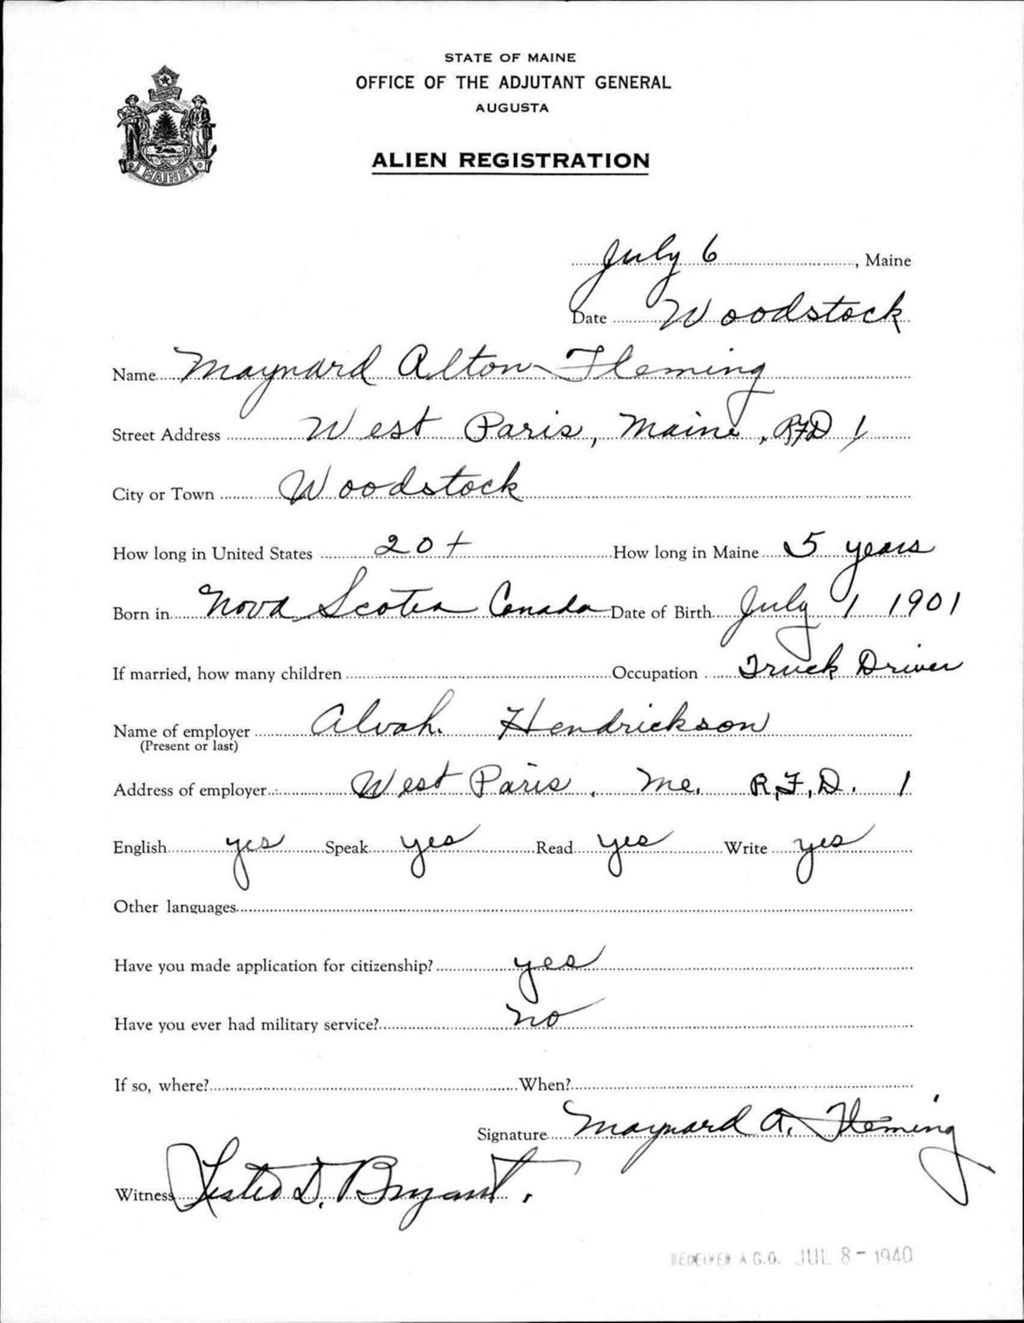 STATE OF MAINE
OFFICE OF THE ADJUTANT GENERAL
AUGUSTA
ALIEN REGISTRATION
MAINE
July 6, Maine
Date Woodstock
Name Maynard Alton Fleming
Street Address West Paris, Maine, RFD 1
City or Town Woodstock
How long in United States 20+ How long in Maine 5 years
Born in Nova Scotia Canada Date of Birth July 1 1901
If married, how many children Occupation Truck Driver
Name of employer Alvah. Hendrickson
(Present or last)
Address of employer West Paris, Me. R.F.D. 1
English yes Speak yes Read yes Write yes
Other languages
Have you made application for citizenship? yes
Have you ever had military service? no
If so, where? When?
Signature Maynard A. Fleming
Witness Lester D. Bryant.
RECEIVED A.G.O. JUL 8 - 1940